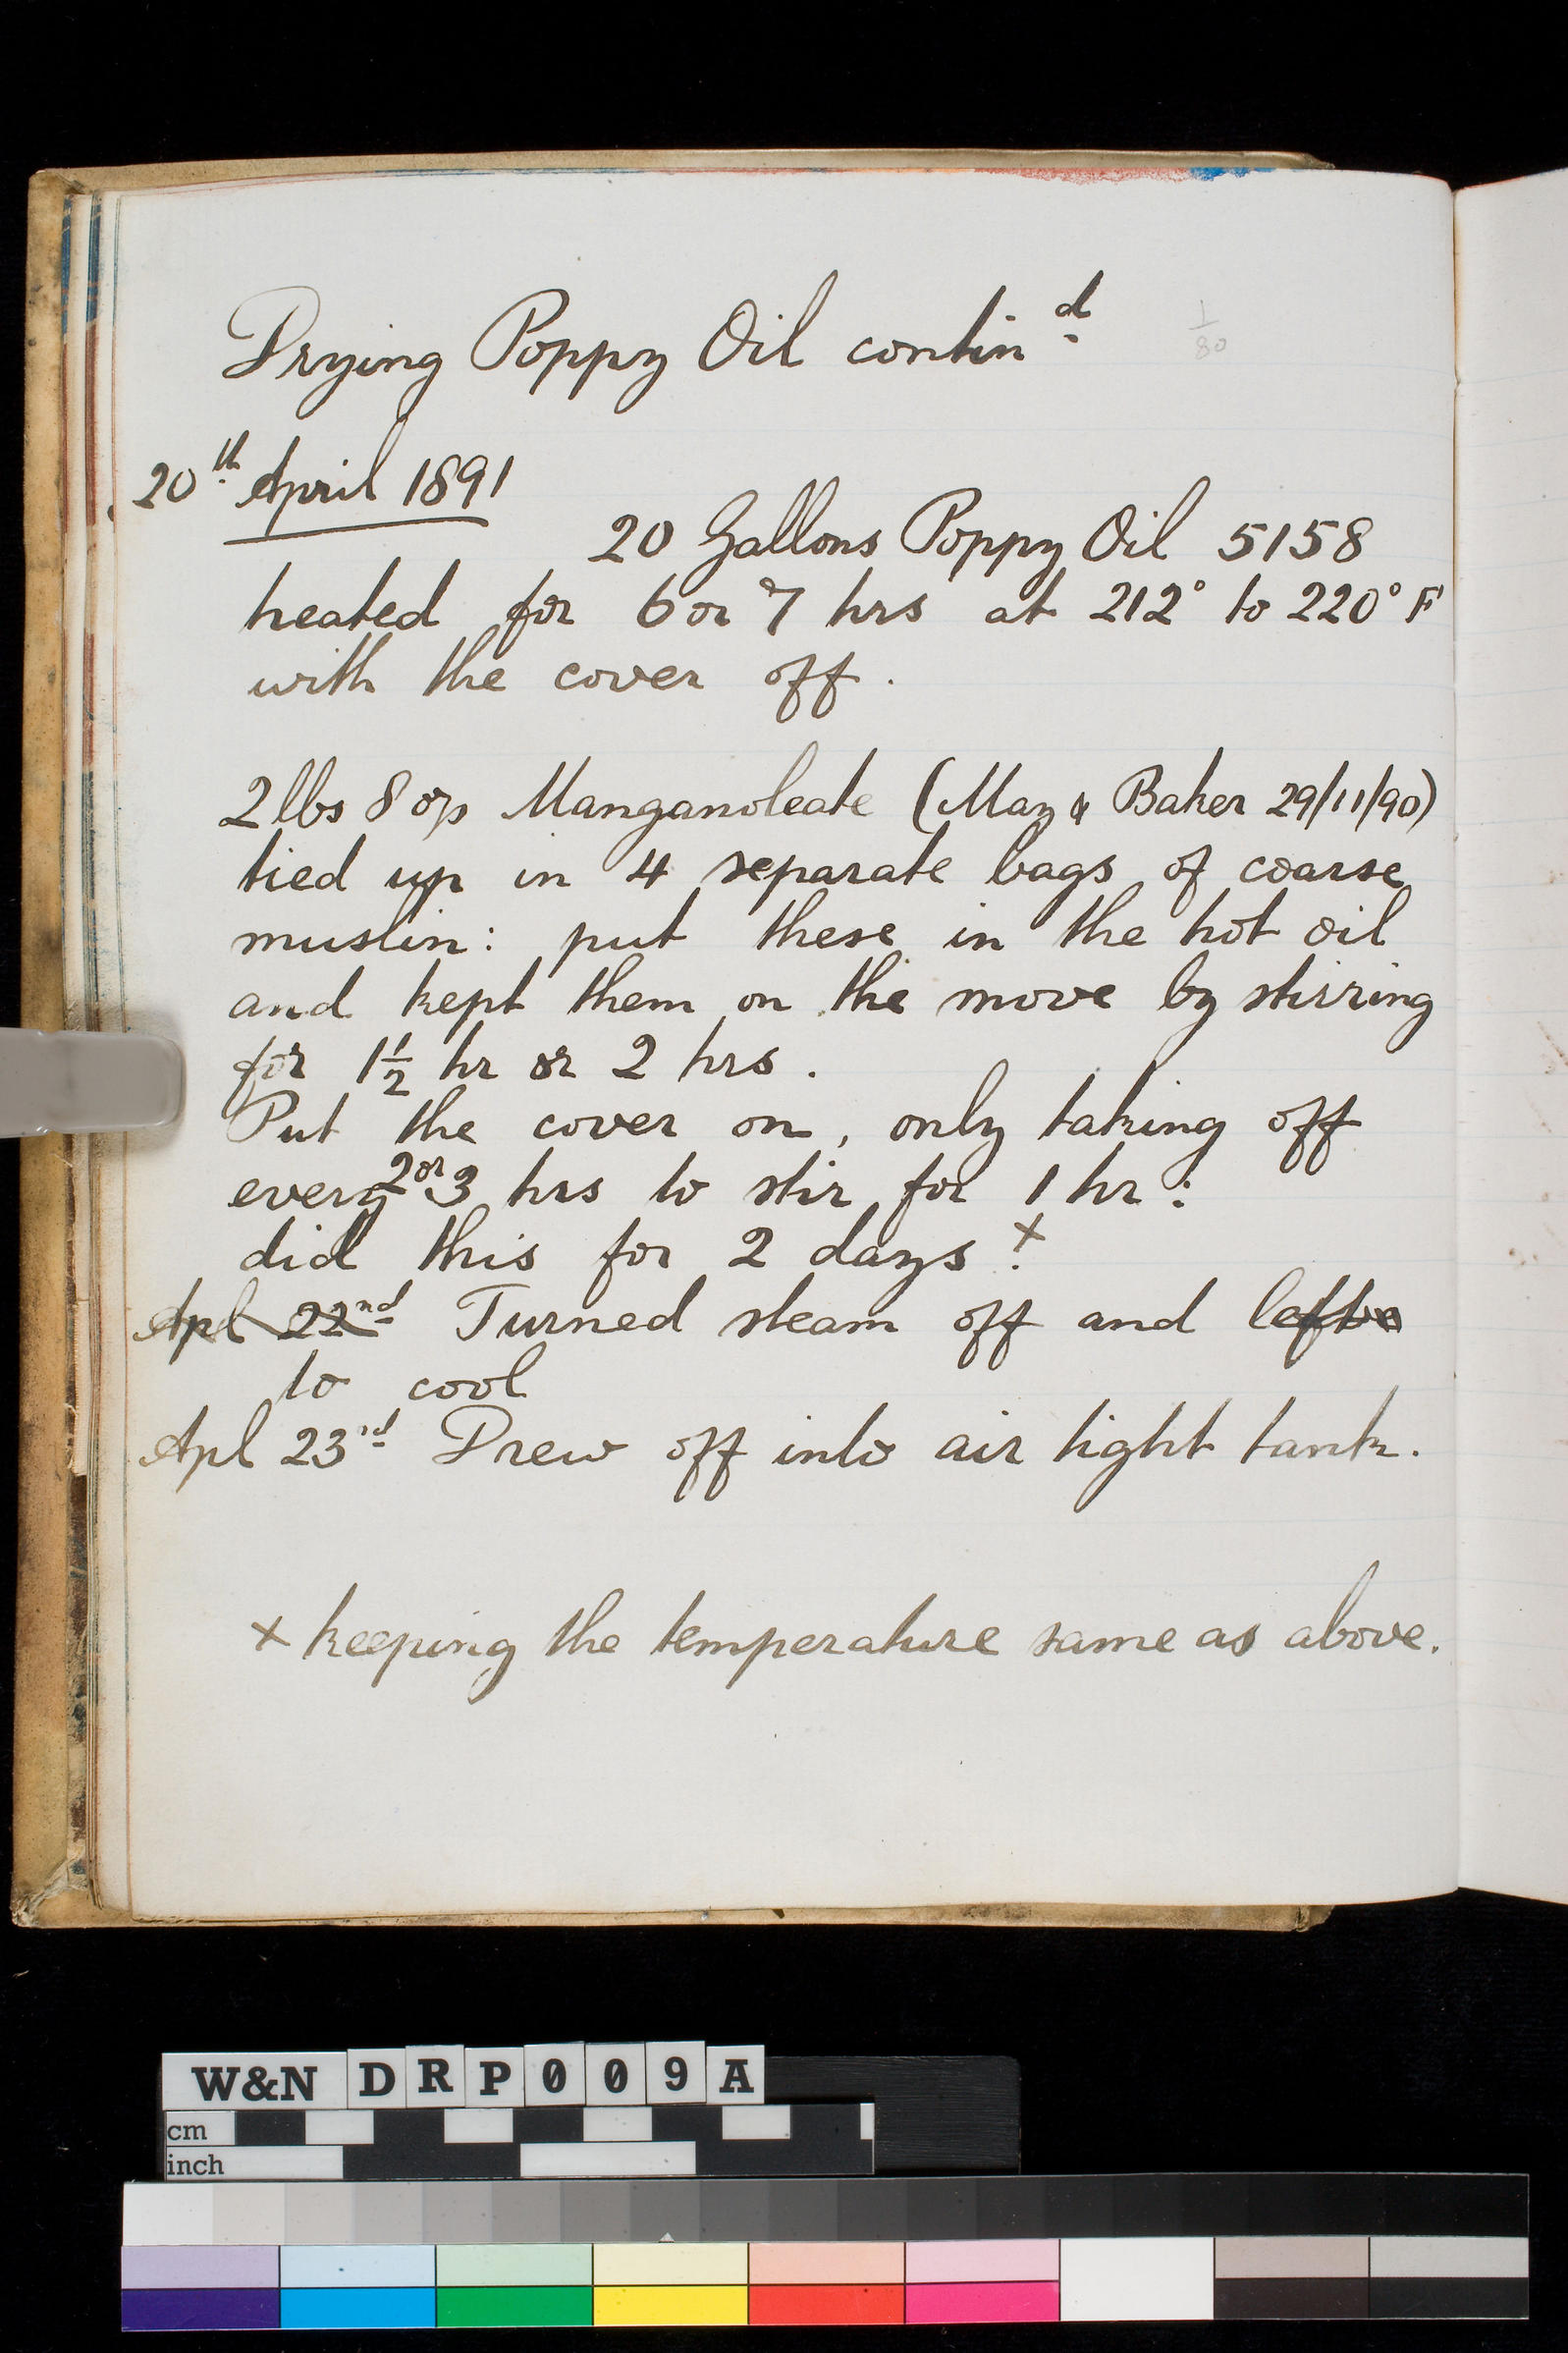 Drying Poppy Oil contin.d
1/80
20th April 1891
20 Gallons Poppy Oil 5158
heated for 6 or 7 hrs at 212° to 220° F
with the cover off.
2 lbs 8 ozs Manganoleate (May & Baker 29/11/90)
tied up in 4 separate bags of coarse
muslin: put these in the hot oil
and kept them on the move by stirring
for 1½ hr or 2 hrs.
Put the cover on, only taking off
every 2 or 3 hrs to stir for 1 hr:
did this for 2 days: x
Apl 22nd Turned steam off and left
to cool
Apl 23rd Drew off into air tight tank.
x keeping the temperature same as above.
W&N DRP009A
cm
inch